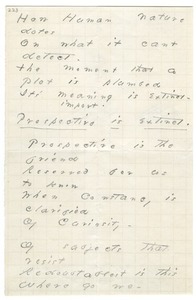 233
How Human nature
dotes
On what it cant
detect.
The moment that a
plot is plumbed
It's meaning is extinct.
import.
Prospective is extinct.
Prospective is the
friend
Reserved for us
to know
When Constancy is
clarified
Of Curiosity.
Of subjects that
resist
Redoubtablest is this
Where go we